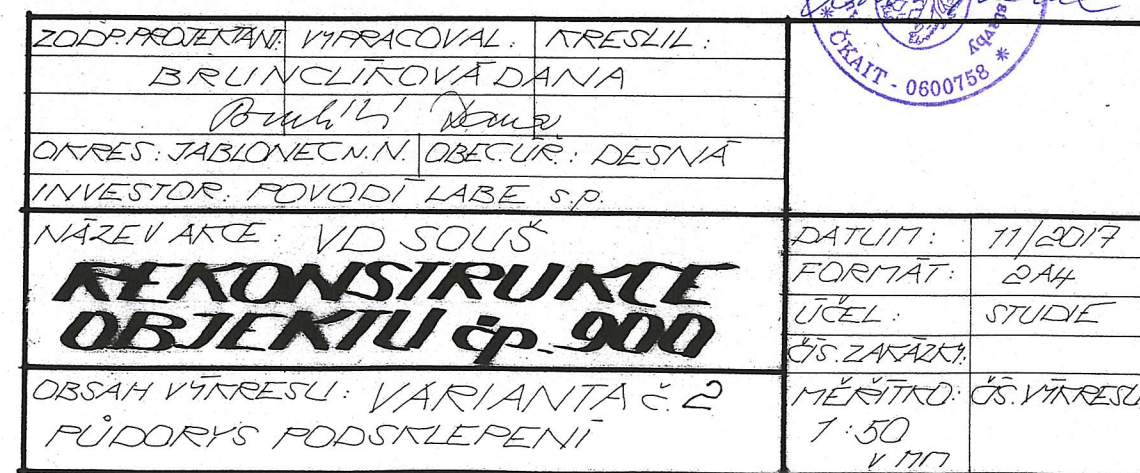 ZODP. PROJEKTANT: VYPRACOVAL: KRESLIL:
BRUNCLÍKOVÁ DANA
OKRES: JABLONEC N.N. OBEC.ÚŘ.: DESNÁ
INVESTOR: POVODÍ LABE s.p.
NÁZEV AKCE: VD SOUŠ
REKONSTRUKCE
OBJEKTU čp. 900
OBSAH VÝKRESU: VARIANTA č. 2
PŮDORYS PODSKLEPENÍ
ČKAIT - 0600758
DATUM: 11/2017
FORMÁT: 2A4
ÚČEL: STUDIE
ČÍS. ZAKÁZKY:
MĚŘÍTKO: ČÍS. VÝKRESU
1:50
V MM